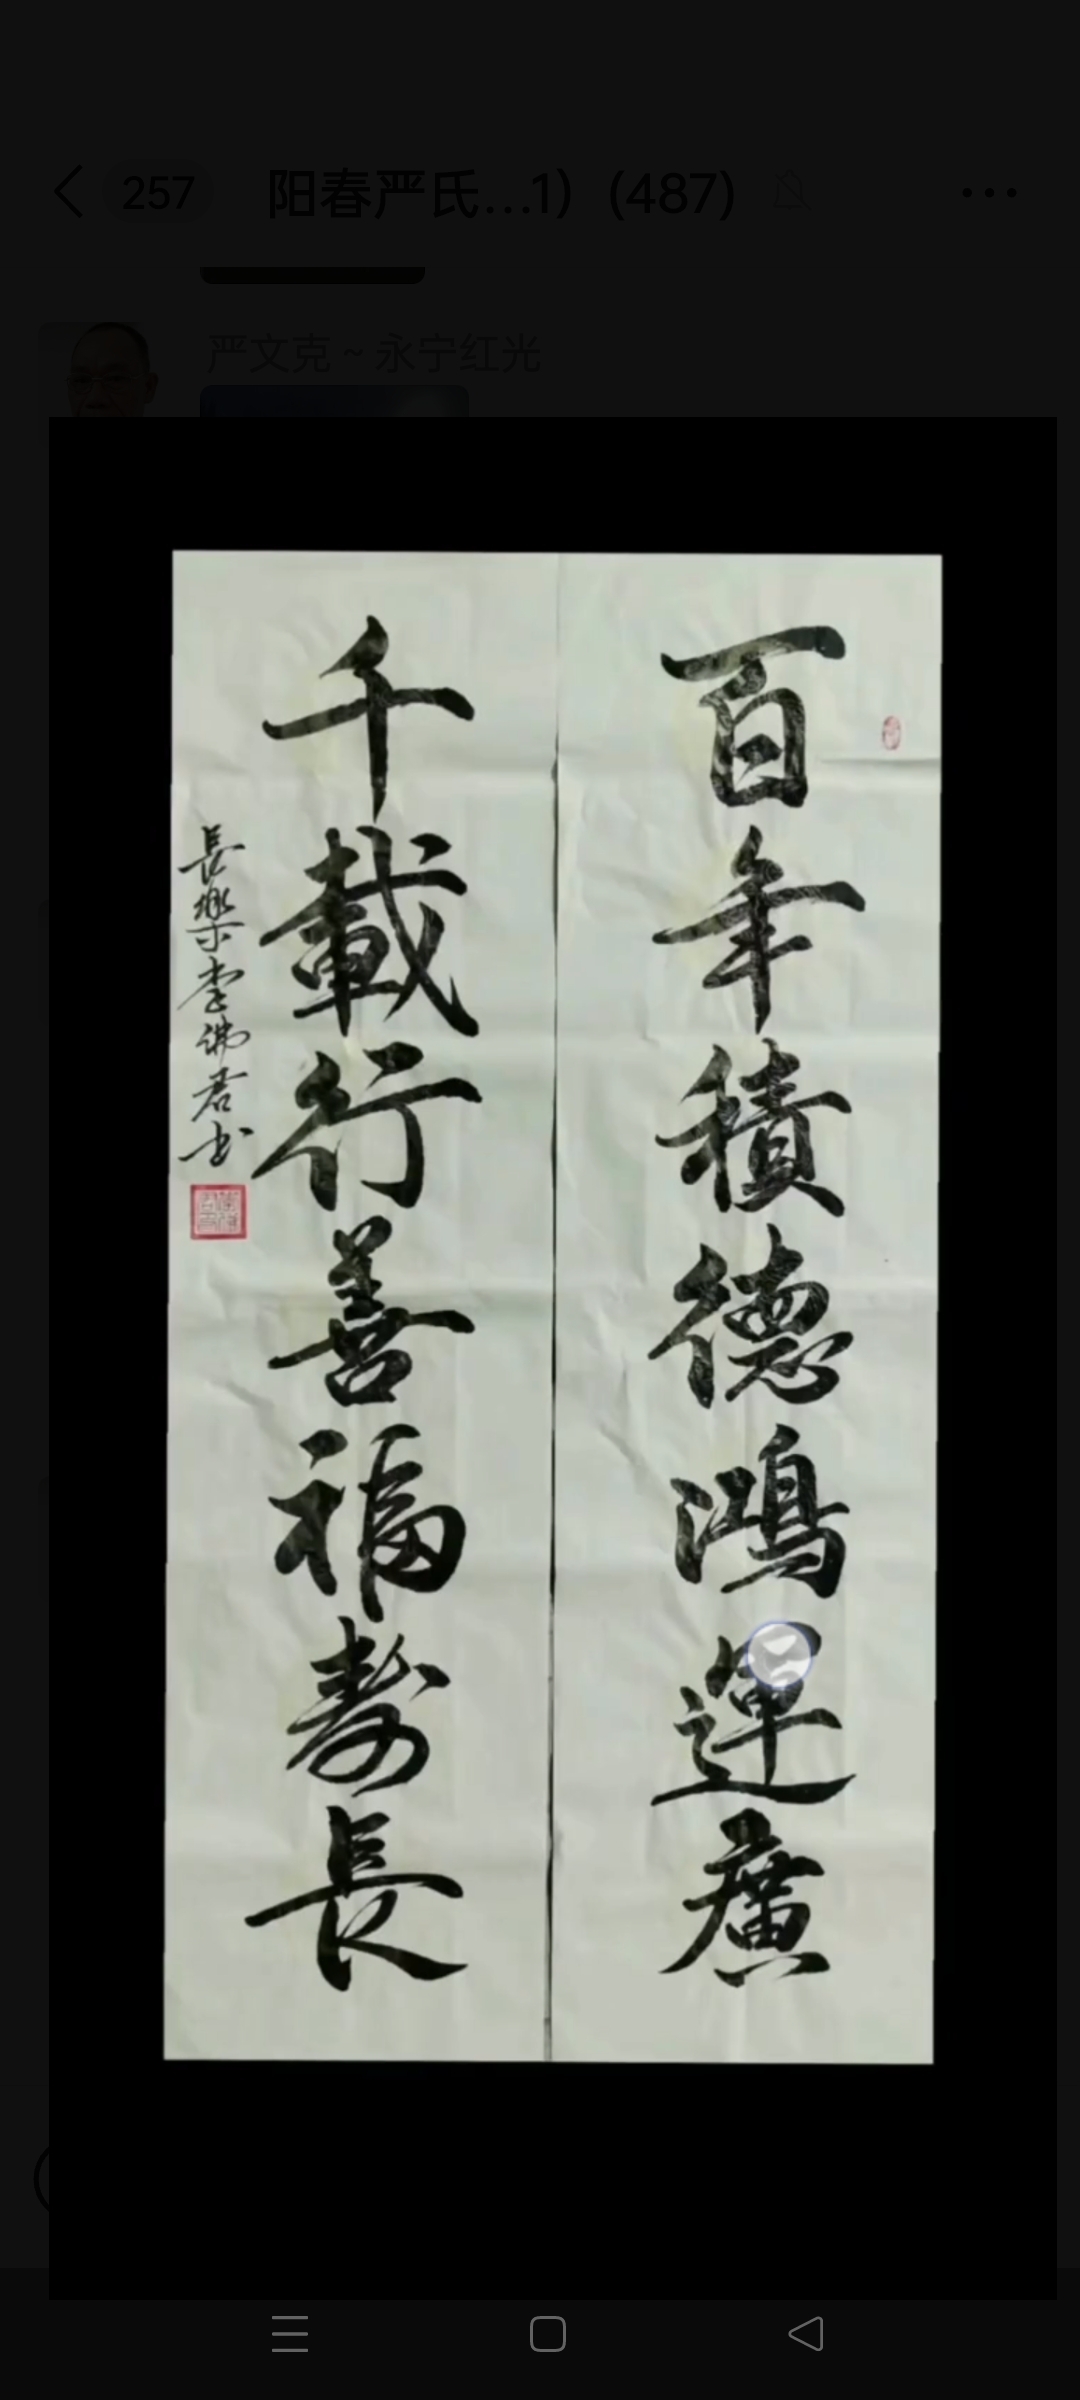 257
阳春严氏...1) (487)
严文克~永宁红光
百年積德鴻運廣
千載行善福壽長
長樂李佛君书